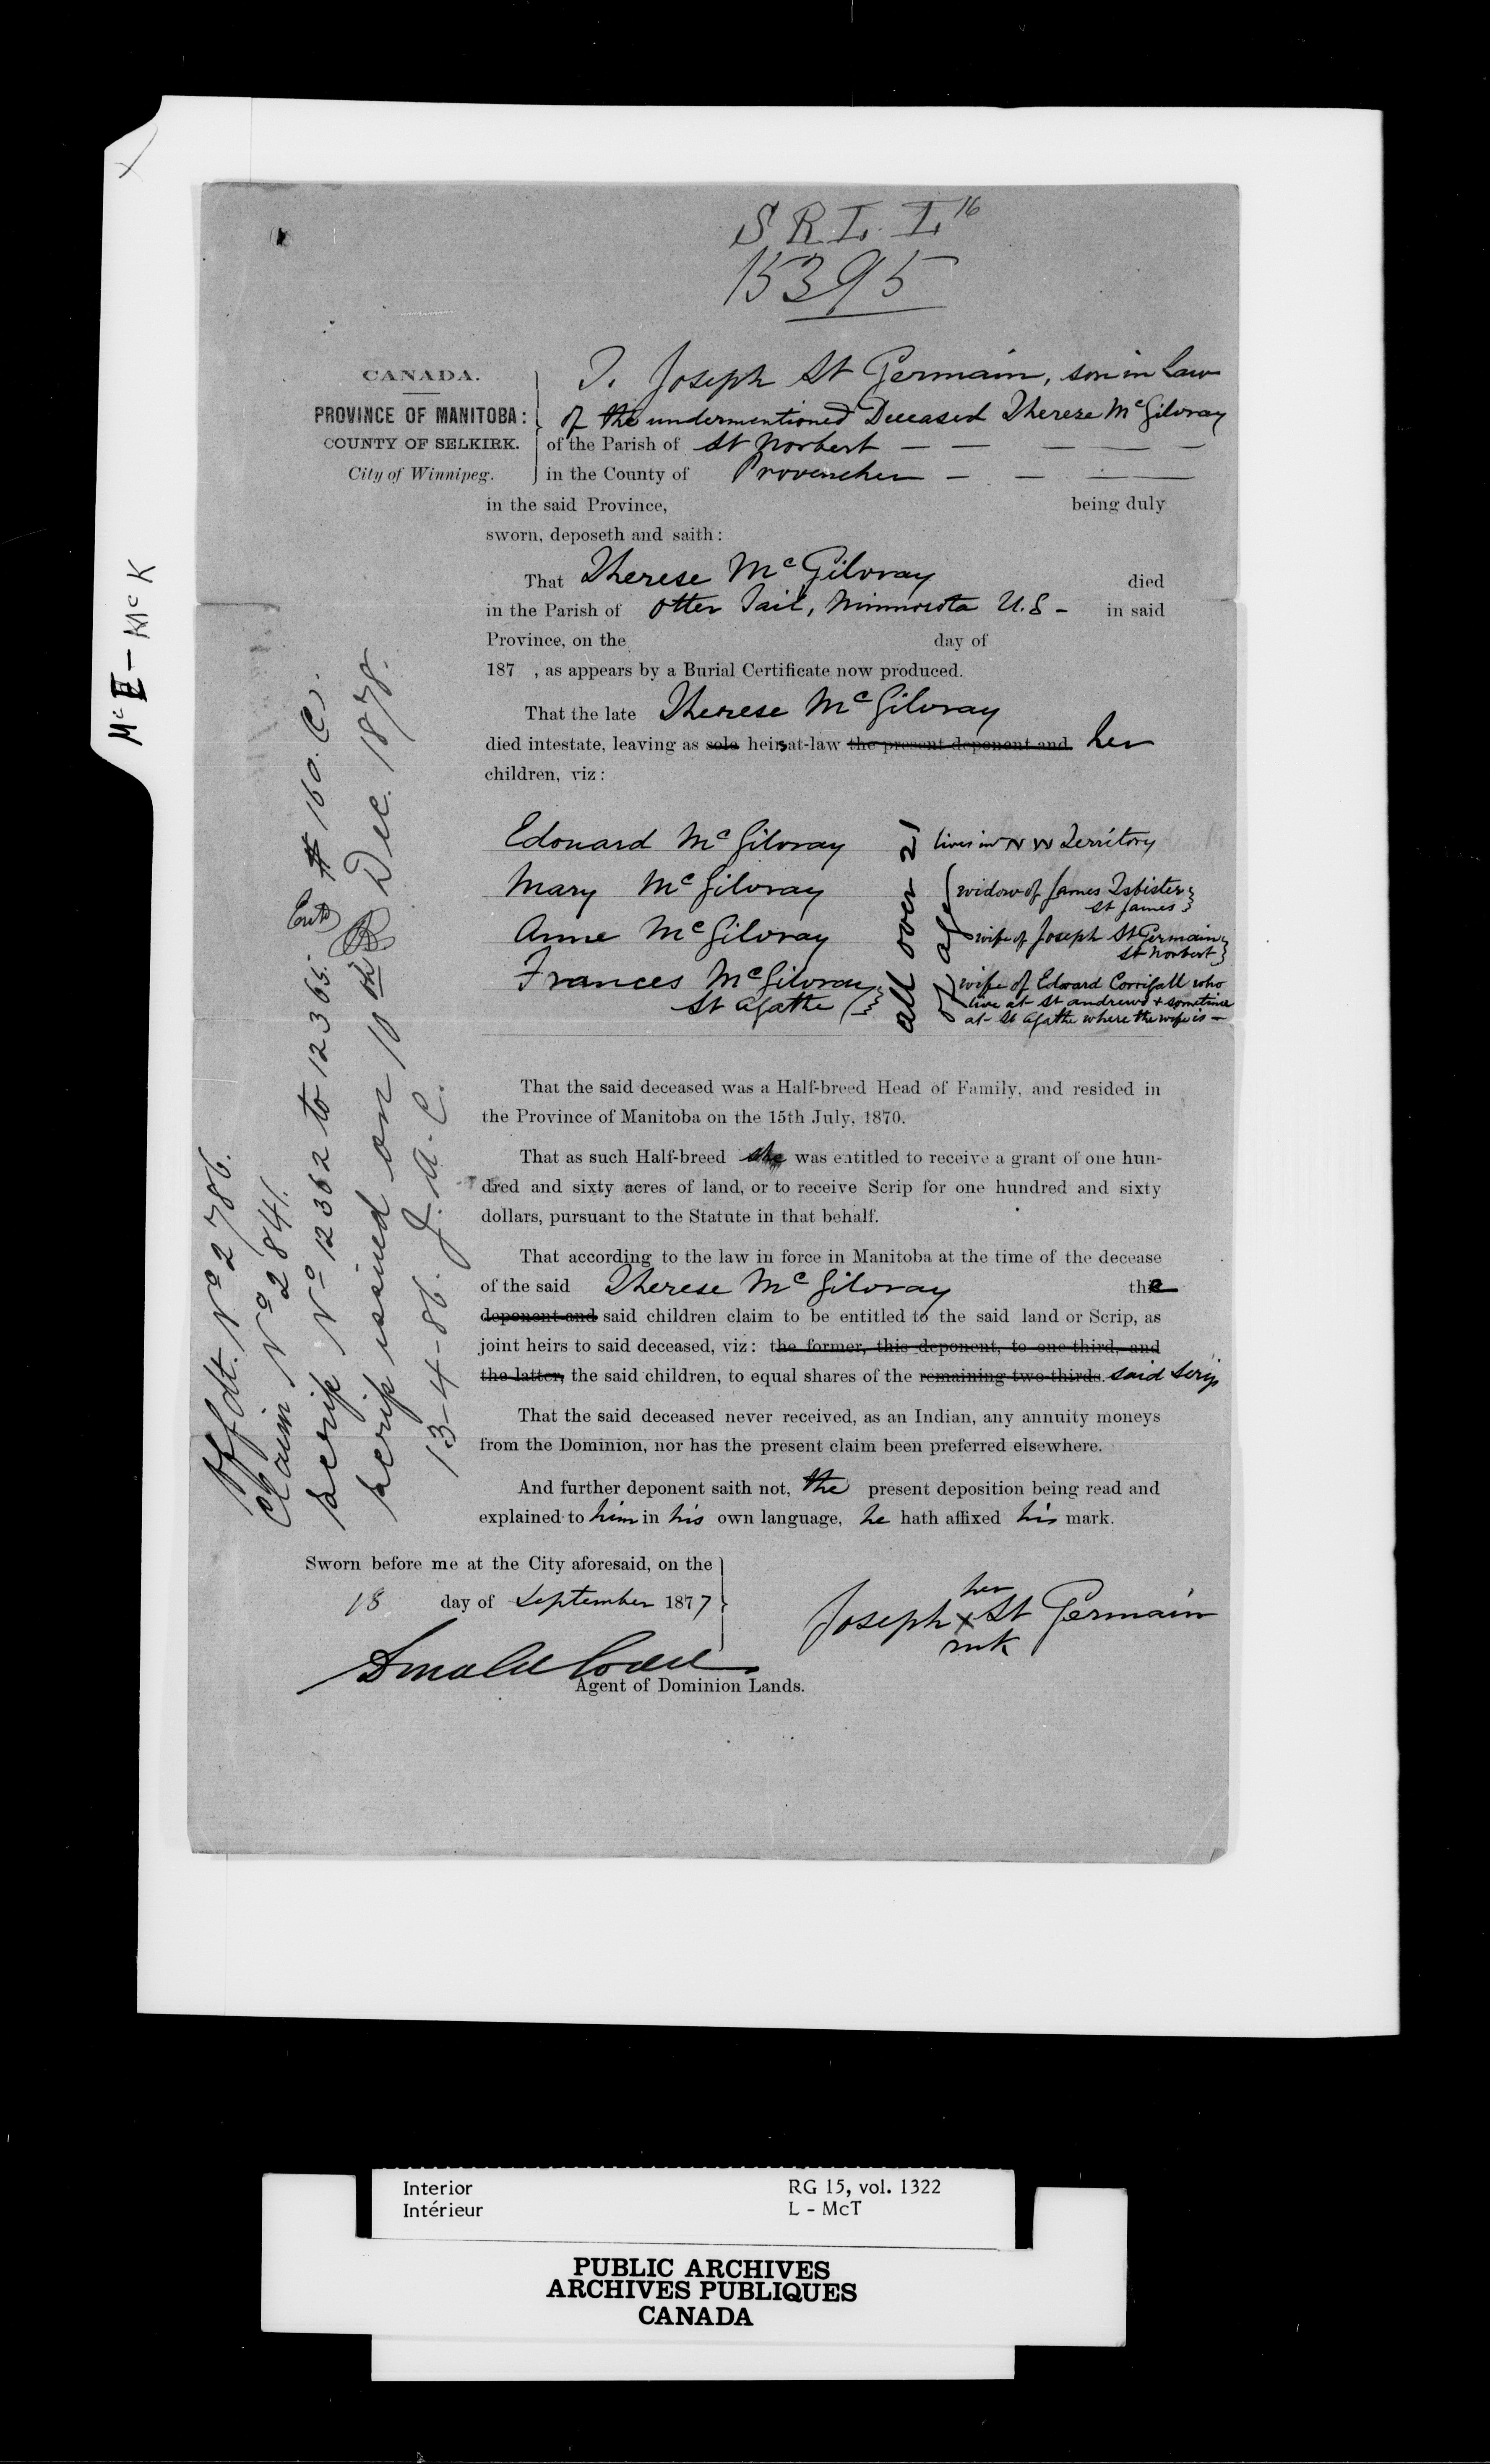 S R L. L 16
15395
CANADA.
PROVINCE OF MANITOBA:
COUNTY OF SELKIRK.
City of Winnipeg.
I. Joseph St Germain, son in law
of the undermentioned Deceased Therese McGilvray
of the Parish of St Norbert
in the County of Provencher
in the said Province, being duly
sworn, deposeth and saith:
That Therese McGilvray died
in the Parish of Otter Tail, Minnesota U.S - in said
Province, on the day of
187 , as appears by a Burial Certificate now produced.
That the late Therese McGilvray
died intestate, leaving as sole heirs at-law the present deponent and her
children, viz:
Edouard McGilvray lives in N W Territory
Mary McGilvray widow of James Isbister
St James
Anne McGilvray wife of Joseph St Germain
St Norbert
Frances McGilvray wife of Edward Corrigall who
St Agathe live at St Andrews + sometime
at St Agathe where the wife is -
all over 21
of age
That the said deceased was a Half-breed Head of Family, and resided in
the Province of Manitoba on the 15th July, 1870.
That as such Half-breed she was entitled to receive a grant of one hun-
dred and sixty acres of land, or to receive Scrip for one hundred and sixty
dollars, pursuant to the Statute in that behalf.
That according to the law in force in Manitoba at the time of the decease
of the said Therese McGilvray the
deponent and said children claim to be entitled to the said land or Scrip, as
joint heirs to said deceased, viz: the former, this deponent, to one third, and
the latter, the said children, to equal shares of the remaining two-thirds. said scrip
That the said deceased never received, as an Indian, any annuity moneys
from the Dominion, nor has the present claim been preferred elsewhere.
And further deponent saith not, the present deposition being read and
explained to him in his own language, he hath affixed his mark.
Sworn before me at the City aforesaid, on the
18 day of September 1877
her
Joseph x St Germain
mk
Agent of Dominion Lands.
Affdt. No 2786.
Claim No 2841.
Scrip No 12362 to 12365. Entd # 160. C.
Scrip issued on 10th Dec. 1878.
13-4-86. J. A. C.
McE - McK
Interior
Intérieur
RG 15, vol. 1322
L - McT
PUBLIC ARCHIVES
ARCHIVES PUBLIQUES
CANADA